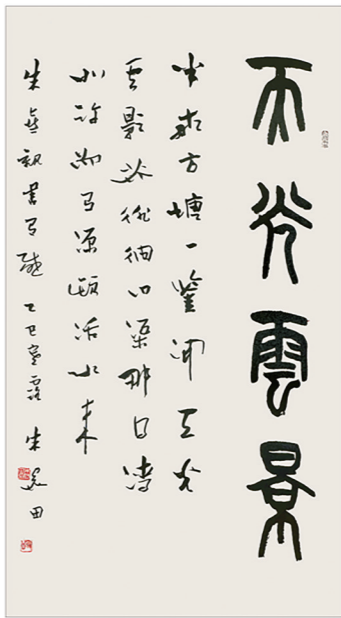 天光雲景
半畝方塘一鑒開天光
雲影共徘徊問渠那得清
如許為有源頭活水來
朱熹觀書有感 乙巳寒露 朱 田